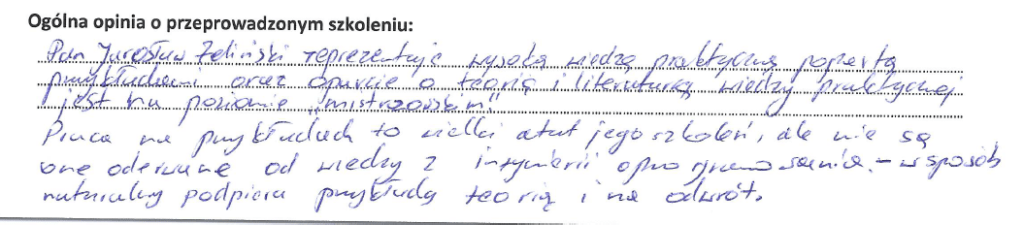 Ogólna opinia o przeprowadzonym szkoleniu:
Pan Jarosław Żeliński reprezentuje wysoką wiedzę praktyczną popartą
przykładami oraz oparcie o teorię i literaturę, wiedzy praktycznej
jest na poziomie "mistrzowskim".
Praca na przykładach to wielki atut jego szkoleń, ale nie są
one oderwane od wiedzy z inżynierii oprogramowania - w sposób
naturalny podpiera przykłady teorią i na odwrót.